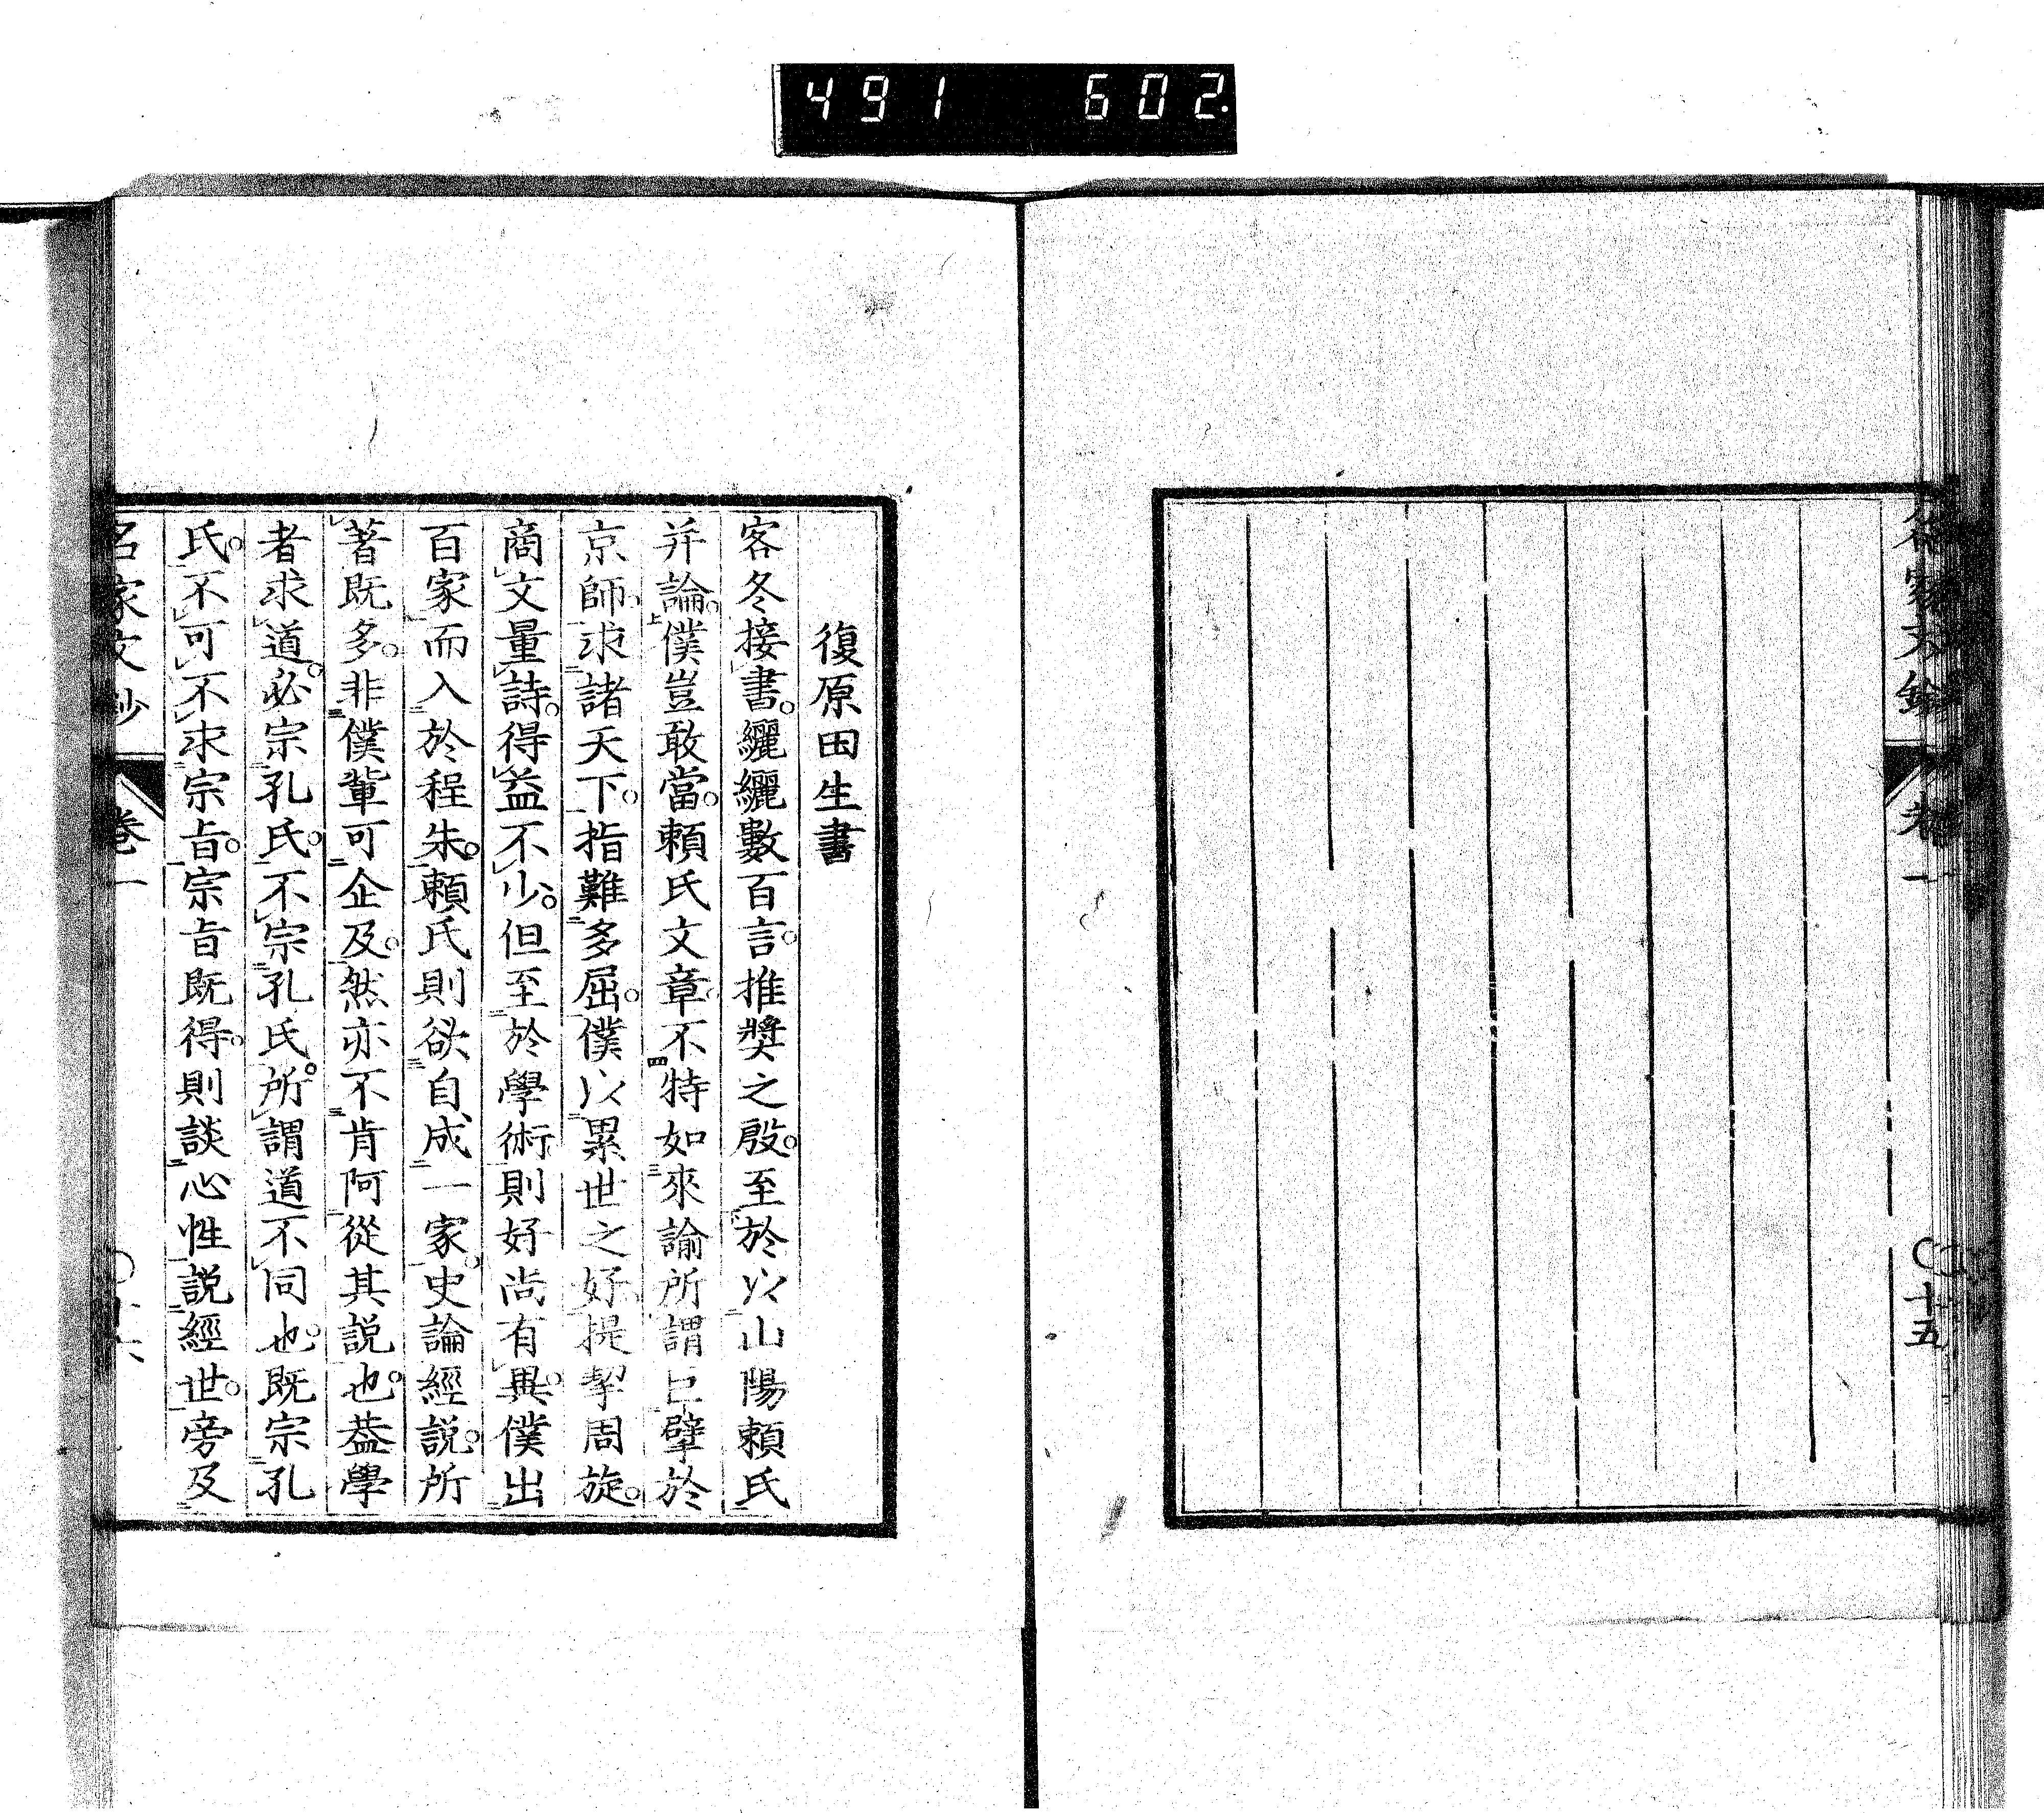 491 602.
十五
復原田生書
客冬接書。纚纚數百言。推奬之殷。至於以山陽頼氏
并論。僕豈敢當。頼氏文章。不特如來諭所謂巨擘於
京師。求諸天下。指難多屈。僕以累世之好。提挈周旋。
商文量詩。得益不少。但至於學術則好尚有異。僕出
百家而入於程朱。頼氏則欲自成一家。史論經説。所
著既多。非僕輩可企及。然亦不肯阿從其説也。葢學
者求道。必宗孔氏。不宗孔氏。所謂道不同也。既宗孔
氏。不可不求宗旨。宗旨既得。則談心性説經世。旁及
名家文抄 卷一